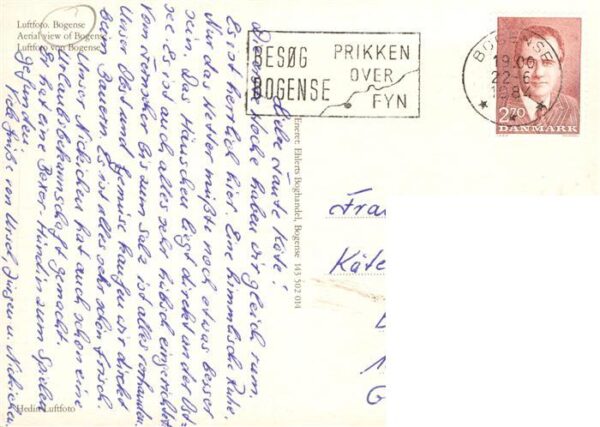 Luftfoto. Bogense
Aerial view of Bogense
Luftfoto von Bogense
BESØG
BOGENSE
PRIKKEN
OVER
FYN
BOGENSE
19.00
22-6
1984
2.70
DANMARK
Eneret: Ehlerts Boghandel, Bogense 143 502 014
Liebe Tante Käte!
Die Woche haben wir gleich rum.
Es ist herrlich hier. Eine himmlische Ruhe.
Nur das Wetter müßte noch etwas besser
sein. Das Häuschen liegt direkt an der Ost-
see. Es ist auch alles sehr hübsch eingerichtet.
Vom Fernseher bis zum Salz ist alles vorhanden.
Unser Obst und Gemüse kaufen wir direkt
beim Bauern. Es ist alles sehr schön frisch.
Unser Nickichen hat auch schon eine
Urlaubsbekanntschaft gemacht.
Er hat eine Boxer-Hündin zum Spielen
gefunden.
Viele Grüße von Ursel, Jürgen u. Nickichen
Hedin Luftfoto
Frau
Käte
G